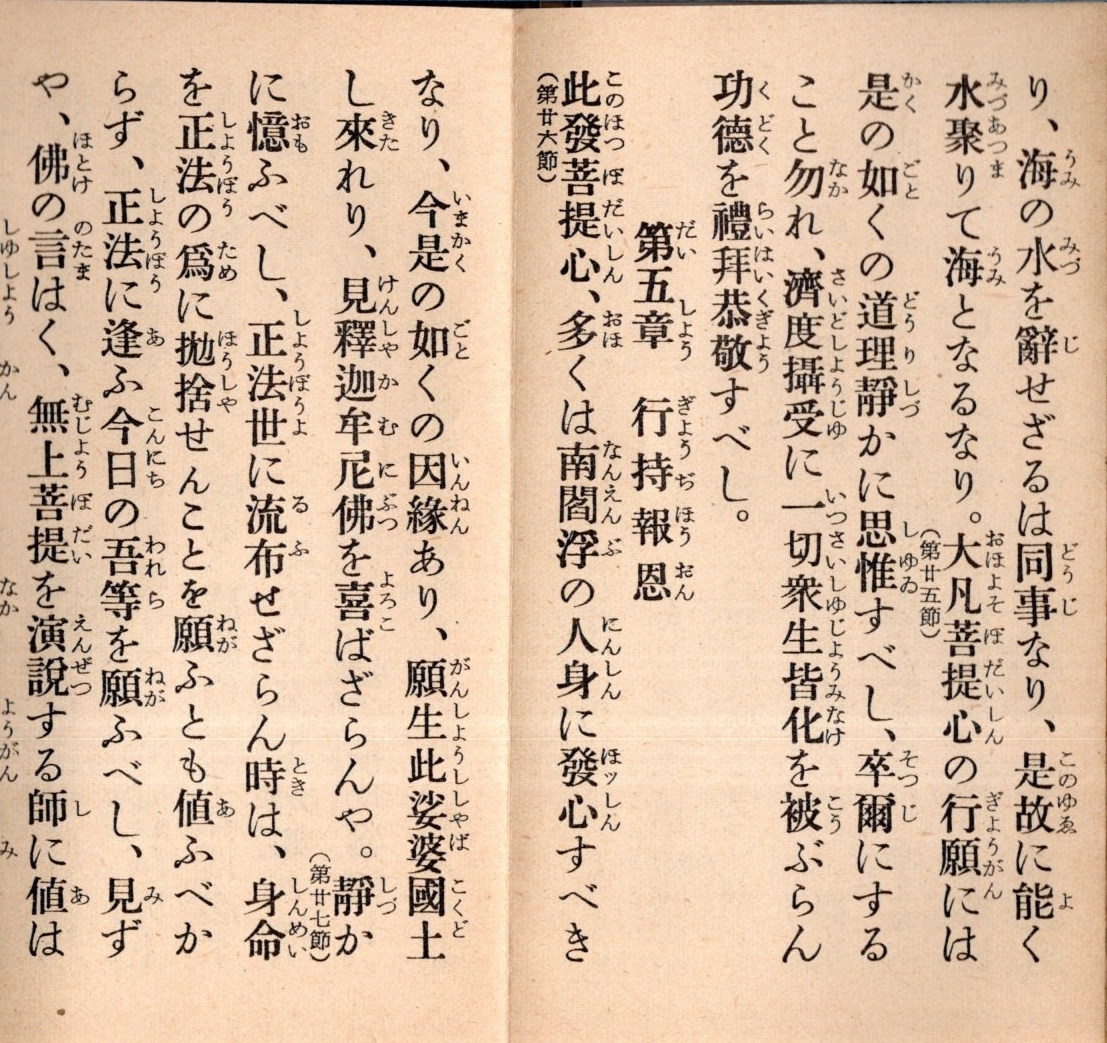 り、海の水を辭せざるは同事なり、是故に能く
水聚りて海となるなり。大凡菩提心の行願には
(第廿五節)
是の如くの道理靜かに思惟すべし、卒爾にする
こと勿れ、濟度攝受に一切衆生皆化を被ぶらん
功德を禮拜恭敬すべし。
第五章 行持報恩
此發菩提心、多くは南閻浮の人身に發心すべき
(第廿六節)
なり、今是の如くの因緣あり、願生此娑婆國土
し來れり、見釋迦牟尼佛を喜ばざらんや。靜か
(第廿七節)
に憶ふべし、正法世に流布せざらん時は、身命
を正法の爲に抛捨せんことを願ふとも値ふべか
らず、正法に逢ふ今日の吾等を願ふべし、見ず
や、佛の言はく、無上菩提を演說する師に値は